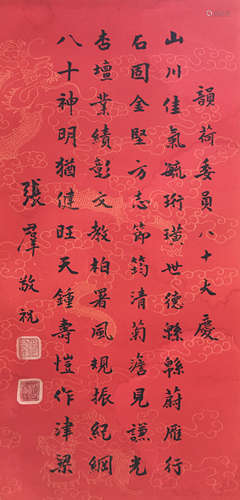 韻荷委員八十大慶
山川佳氣毓珩璜世德緜緜蔚雁行
石固金堅方志節筠清菊澹見謙光
杏壇業績彰文教柏署風規振紀綱
八十神明猶健旺天鍾壽愷作津梁
張羣敬祝